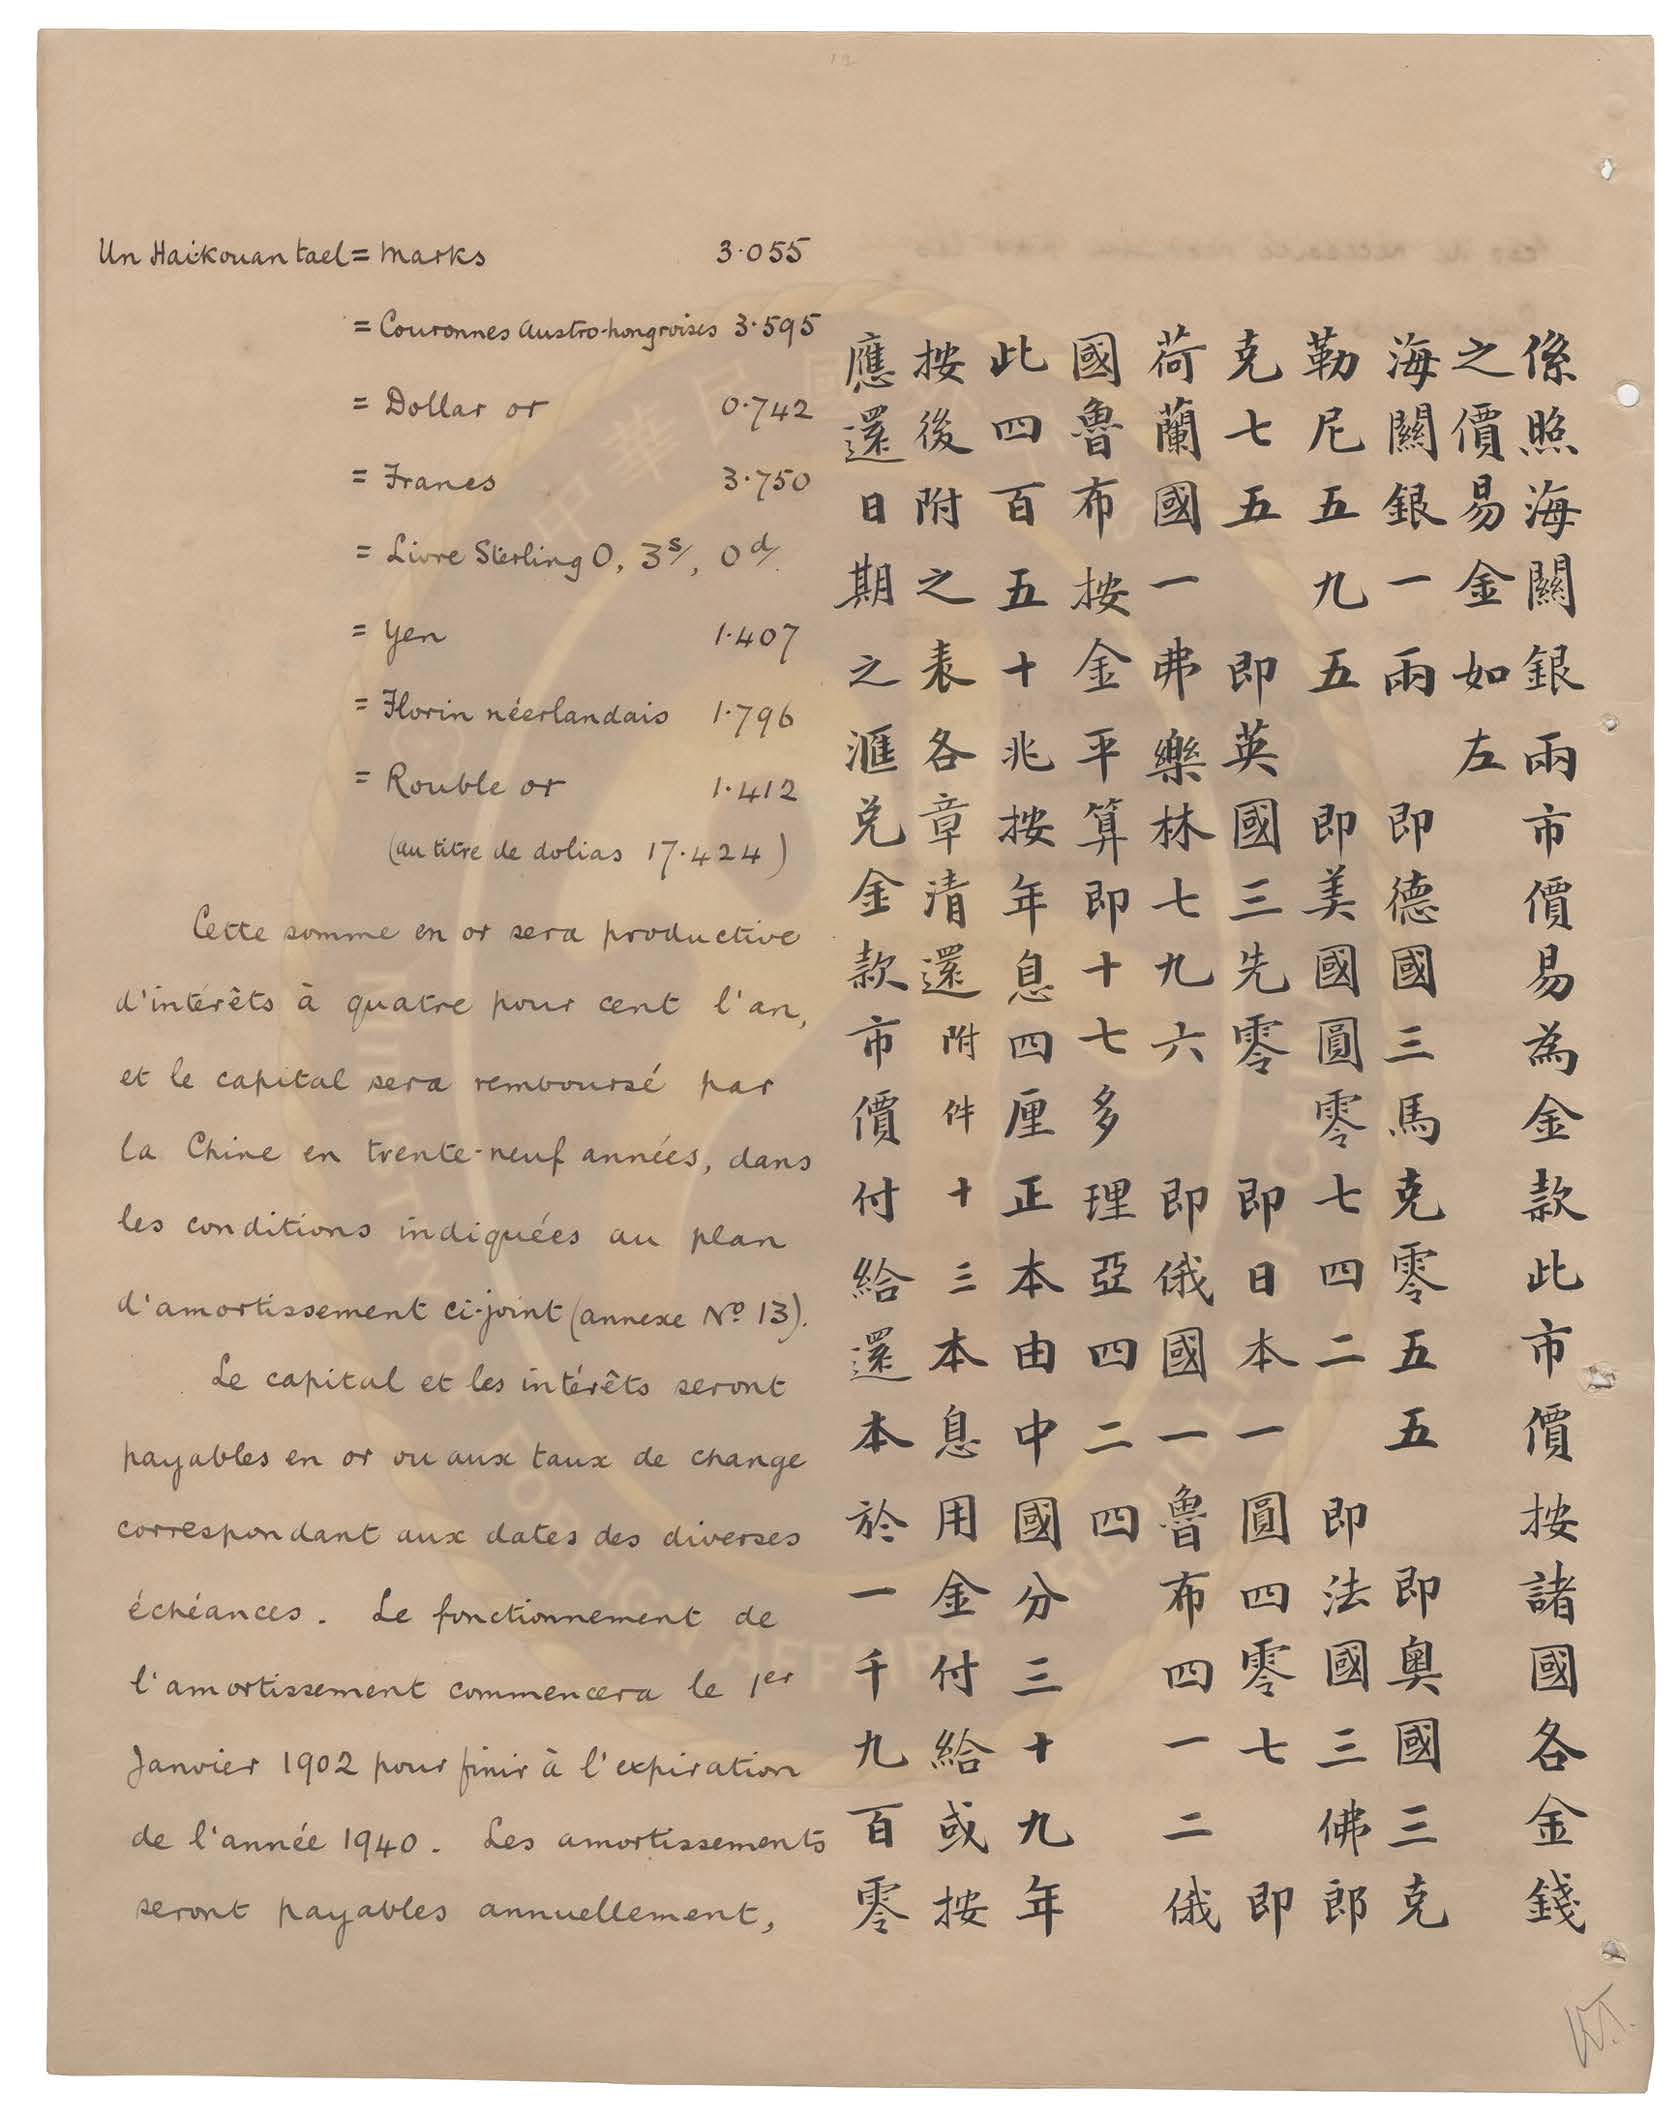 Un Haikouan tael = Marks 3.055
= Couronnes Austro-hongroises 3.595
= Dollar or 0.742
= Francs 3.750
= Livre Sterling 0, 3s/, 0d/.
= Yen 1.407
= Florin néerlandais 1.796
= Rouble or 1.412
(au titre de dolias 17.424)
Cette somme en or sera productive
d'intérêts à quatre pour cent l'an,
et le capital sera remboursé par
la Chine en trente-neuf années, dans
les conditions indiquées au plan
d'amortissement ci-joint (annexe No 13).
Le capital et les intérêts seront
payables en or ou aux taux de change
correspondant aux dates des diverses
échéances. Le fonctionnement de
l'amortissement commencera le 1er
Janvier 1902 pour finir à l'expiration
de l'année 1940. Les amortissements
seront payables annuellement,
係照海關銀兩市價易為金款此市價按諸國各金錢
之價易金如左
海關銀一兩 即德國三馬克零五五 即奧國三克
勒尼五九五 即美國圓零七四二 即法國三佛郎
克七五 即英國三先零 即日本一圓四零七 即
荷蘭國一弗樂林七九六 即俄國一魯布四一二俄
國魯布按金平算即十七多理亞四二四
此四百五十兆按年息四厘正本由中國分三十九年
按後附之表各章清還附件十三本息用金付給或按
應還日期之滙兌金款市價付給還本於一千九百零